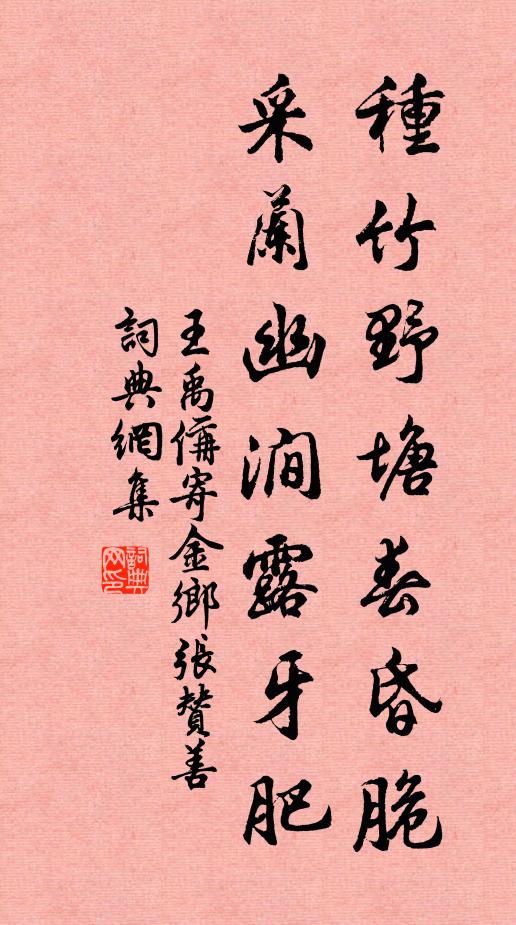 種竹野塘春昏脆
采蘭幽澗露牙肥
王禹偁寄金鄉張贊善
詞典網集
詞典网印